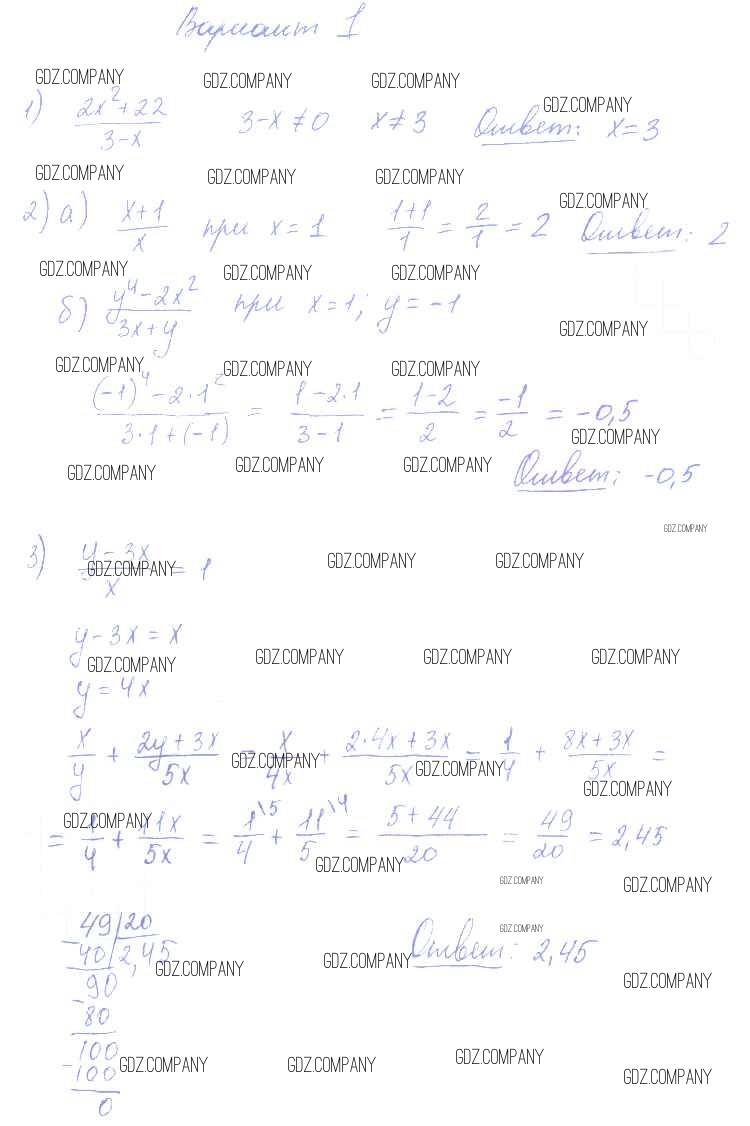 Вариант 1
GDZ.COMPANY GDZ.COMPANY GDZ.COMPANY
1) (2x²+22)/(3-x) 3-x≠0 x≠3 Ответ: x=3
GDZ.COMPANY
GDZ.COMPANY GDZ.COMPANY GDZ.COMPANY
2) а) (x+1)/x при x=1 (1+1)/1 = 2/1 = 2 Ответ: 2
GDZ.COMPANY
GDZ.COMPANY GDZ.COMPANY GDZ.COMPANY
б) (y⁴-2x²)/(3x+y) при x=1; y=-1
GDZ.COMPANY
GDZ.COMPANY GDZ.COMPANY GDZ.COMPANY
((-1)⁴-2·1²)/(3·1+(-1)) = (1-2·1)/(3-1) = (1-2)/2 = -1/2 = -0,5
GDZ.COMPANY
GDZ.COMPANY GDZ.COMPANY GDZ.COMPANY
Ответ: -0,5
GDZ.COMPANY
3) (y-3x)/x = 1
GDZ.COMPANY GDZ.COMPANY GDZ.COMPANY
y-3x=x
GDZ.COMPANY GDZ.COMPANY GDZ.COMPANY GDZ.COMPANY
y=4x
x/y + (2y+3x)/5x = x/4x + (2·4x+3x)/5x = 1/4 + (8x+3x)/5x =
GDZ.COMPANY GDZ.COMPANY GDZ.COMPANY
GDZ.COMPANY
= 1/4 + 11x/5x = 1\5/4 + 11\4/5 = (5+44)/20 = 49/20 = 2,45
GDZ.COMPANY GDZ.COMPANY GDZ.COMPANY
49 20
GDZ.COMPANY
-40 2,45 Ответ: 2,45
GDZ.COMPANY GDZ.COMPANY GDZ.COMPANY
90
-80
100
-100
GDZ.COMPANY GDZ.COMPANY GDZ.COMPANY GDZ.COMPANY
0